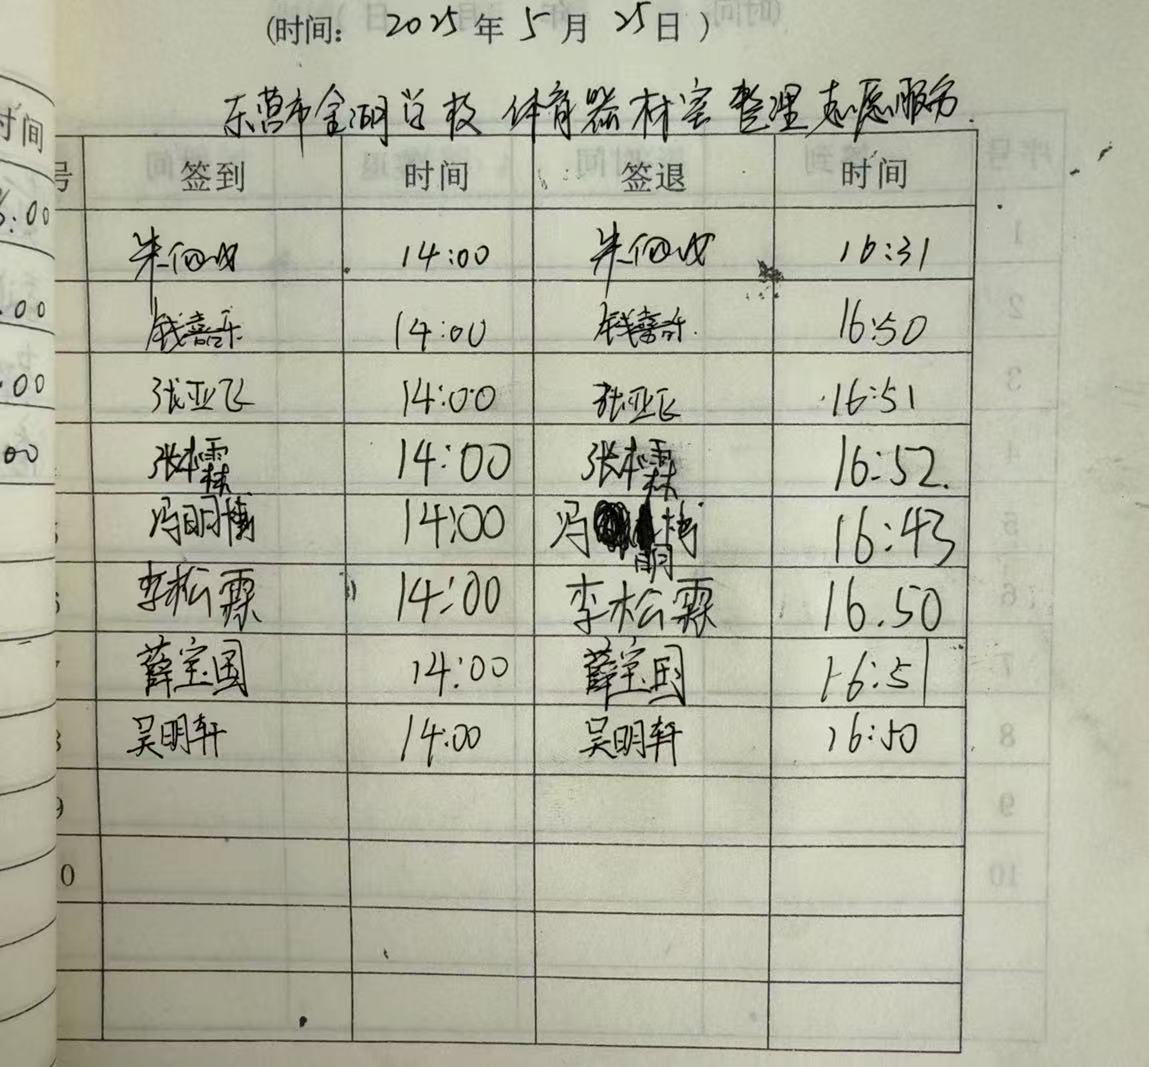 (时间： 2025年5月25日)
东营市金湖学校 体育器材室整理志愿服务.
时间
号 签到 时间 签退 时间
:00
14:00 16:31
.00
钱嘉乐 14:00 钱嘉乐. 16:50
.00
张亚飞 14:00 张亚飞 16:51
00
张本霖 14:00 张本霖 16:52.
冯明博 14:00 冯明博 16:43
李松霖 14:00 李松霖 16.50
薛宝国 14:00 薛宝国 16:51
吴明轩 14:00 吴明轩 16:50
9
0